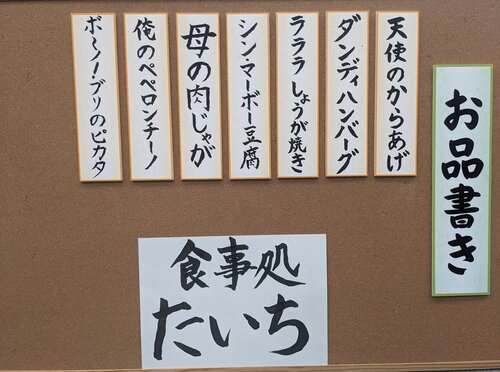 お品書き
天使のからあげ
ダンディハンバーグ
ラララ しょうが焼き
シン・マーボー豆腐
母の肉じゃが
俺のペペロンチーノ
ボーノ!ブリのピカタ
食事処
たいち